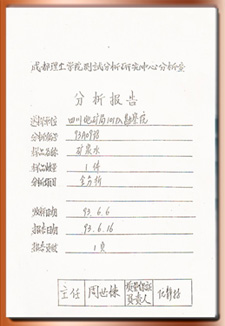 成都理工学院测试分析研究中心分析室
分析报告
送样单位 四川地矿局
分析编号 93A0938
样品名称 矿泉水
样品数量 1件
分析项目 全分析
收样日期 93.6.6
报告日期 93.6.16
报告页数 1页
主任 周世
负责人